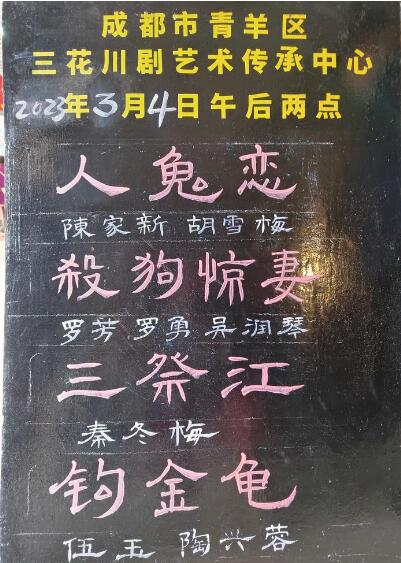 成都市青羊区
三花川剧艺术传承中心
2023年3月4日午后两点
人鬼恋
陳家新 胡雪梅
殺狗惊妻
罗芳 罗勇 吴润琴
三祭江
秦冬梅
钓金龟
伍玉 陶兴蓉